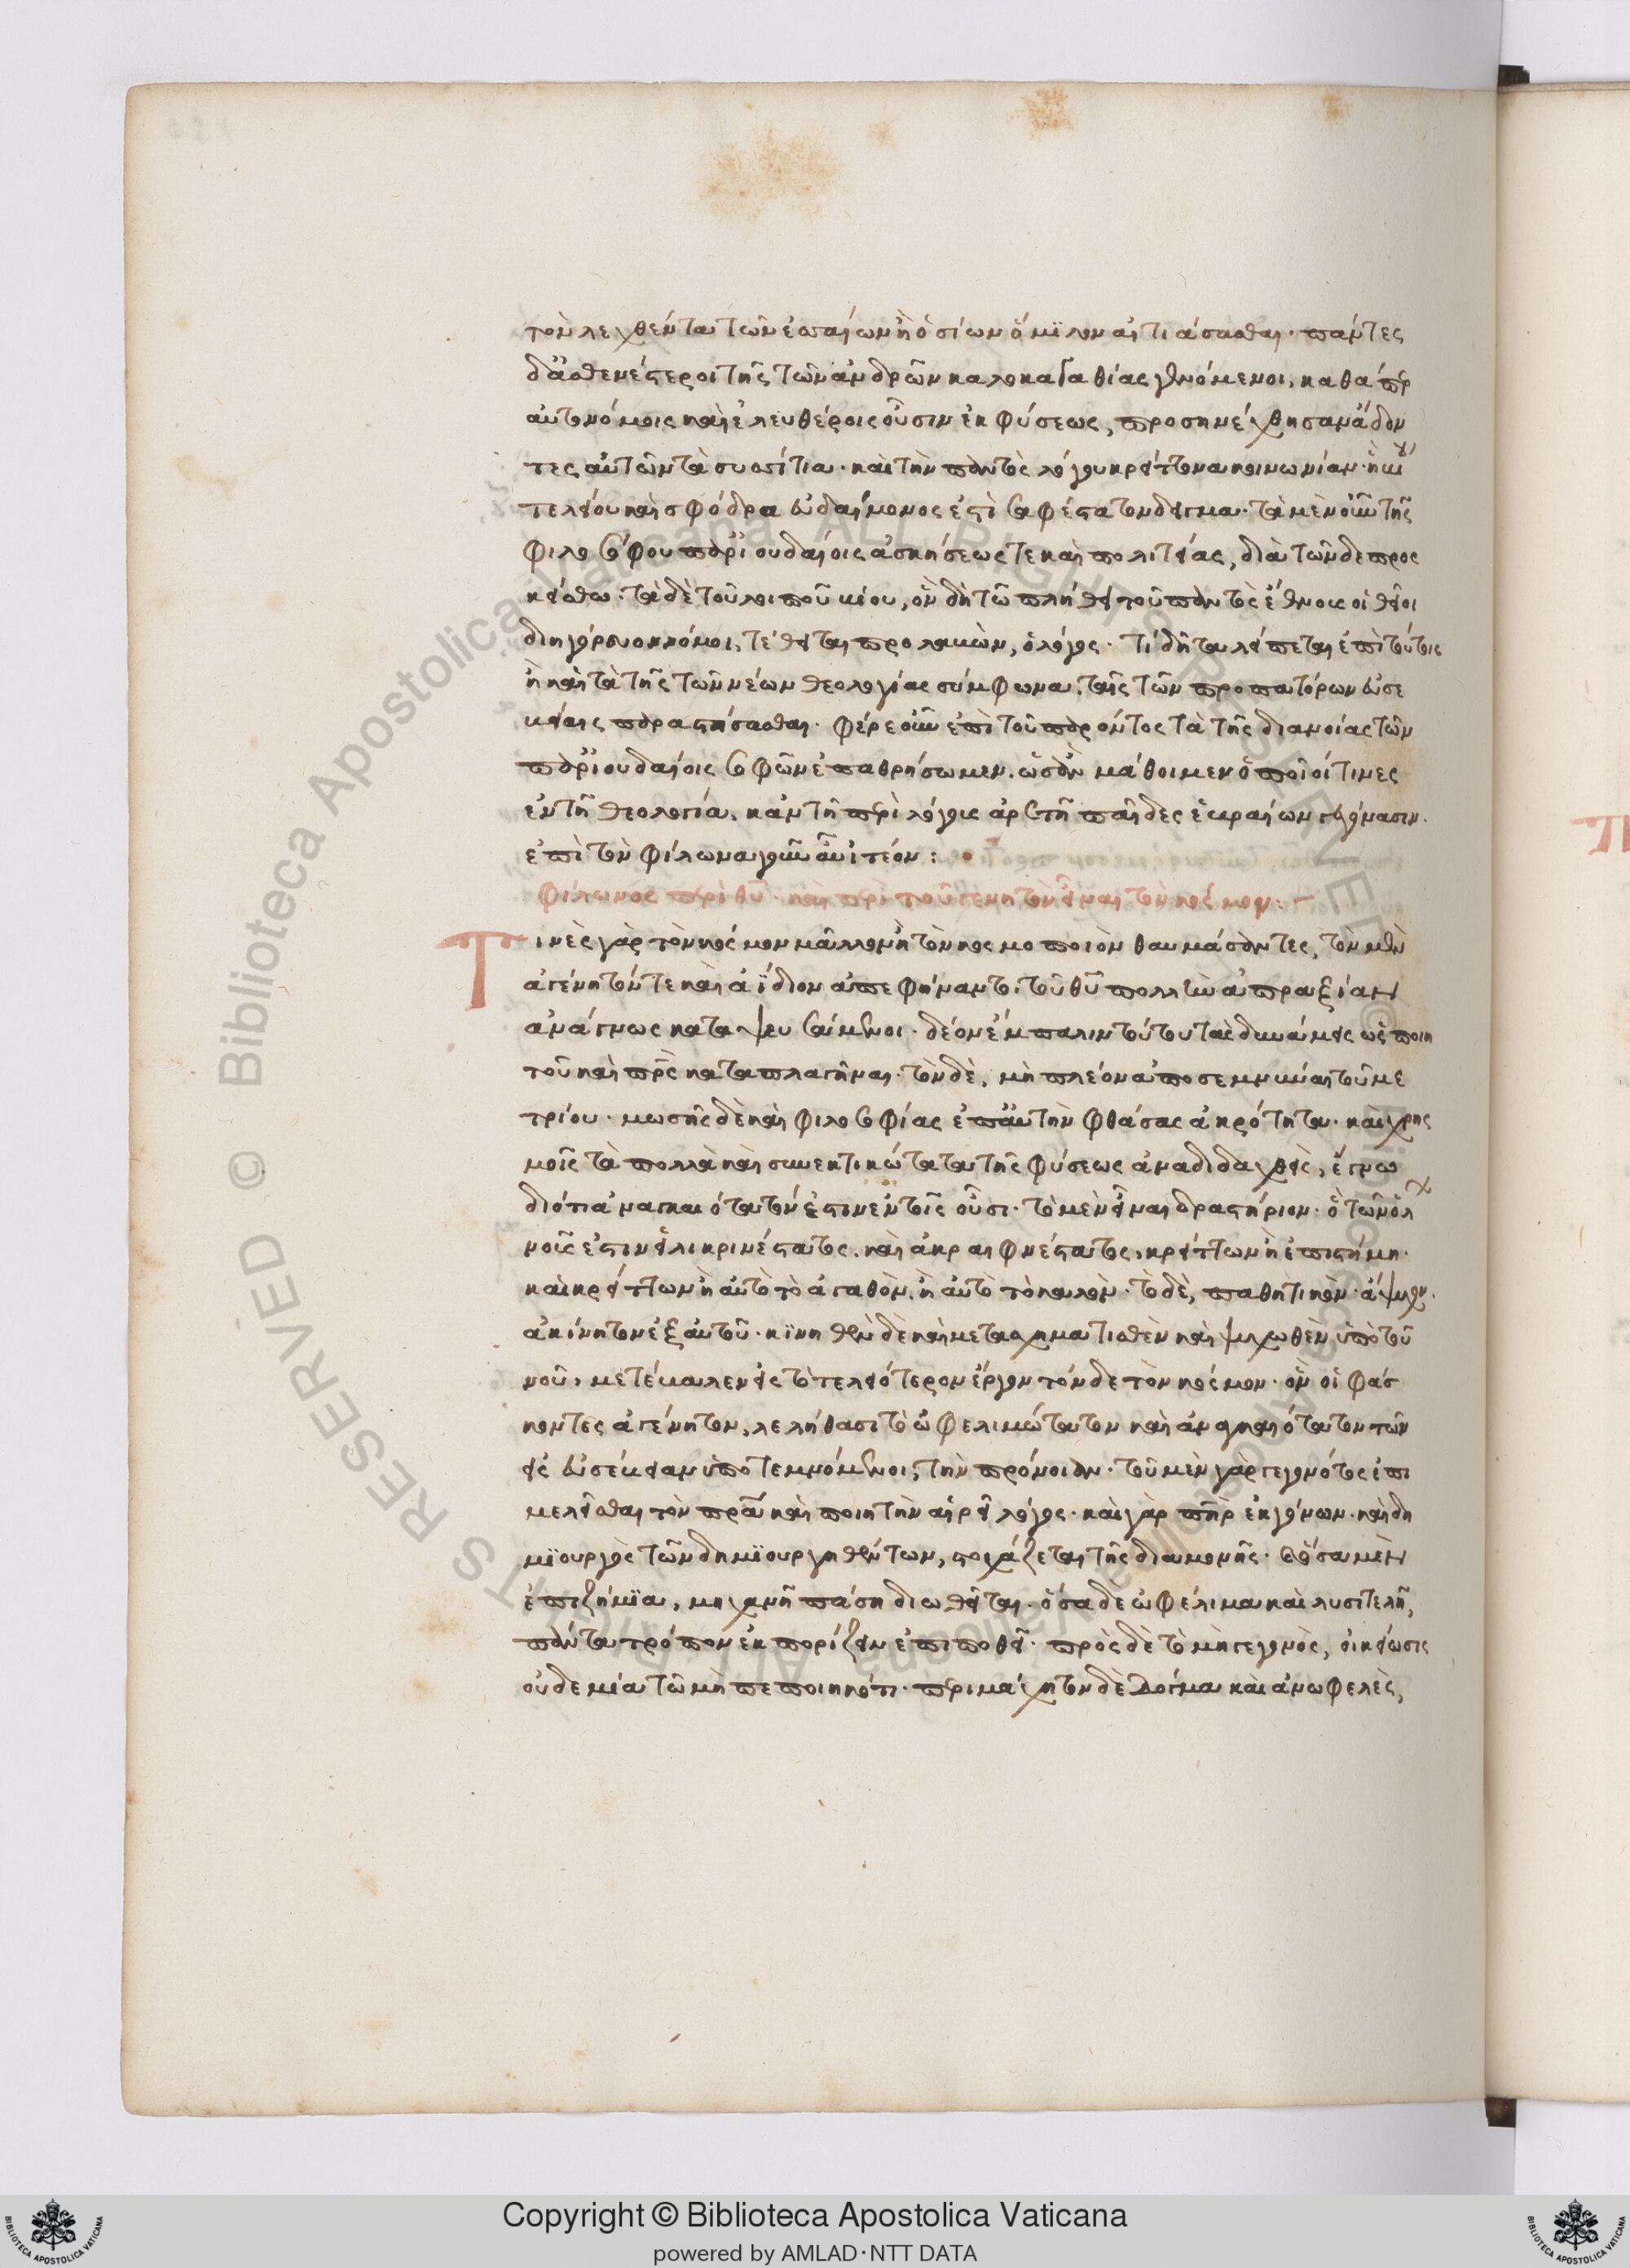 τὸν λεχθέντα τῶν ἐσσαίων ἢ ὁσίων ὅμϊλον αἰτιάσασθαι· πάντες
δ᾽ ἀσθενέστεροι τῆς τῶν ἀνδρῶν καλοκαγαθίας γενόμενοι, καθάπερ
αὐτονόμοις καὶ ἐλευθέροις οὖσιν ἐκ φύσεως, προσηνέχθησαν ἄδον
τες αὐτῶν τὰ συσσίτια· καὶ τὴν παντὸς λόγου κρείττονα κοινωνίαν· ἣ βίου
τελείου καὶ σφόδρα εὐδαίμονος ἐστὶ σαφέστατον δεῖγμα· τὰ μὲν οὖν τῆς
φιλοσόφου παρ᾽ ἰουδαίοις ἀσκήσεώς τε καὶ πολιτείας, διὰ τῶνδε προς
κείσθω· τὰ δὲ τοῦ λοιποῦ βίου, ὃν δὴ τῶ πλήθει τοῦ παντὸς ἔθνους οἱ θεῖοι
διηγόρευον νόμοι, τέθειται προλαβὼν, ὁ λόγος· τί δῆτα λείπεται ἐπὶ τούτοις
ἢ καὶ τὰ τῆς τῶν νέων θεολογίας σύμφωνα ταῖς τῶν προπατόρων εὐσε
βείαις παραστήσασθαι· φέρε οὖν ἐπὶ τοῦ παρόντος τὰ τῆς διανοίας τῶν
παρ᾽ ἰουδαίοις σοφῶν ἐπαθρήσωμεν· ὡς ἂν μάθοιμεν ὁποῖοί τινες
ἐν τῆ θεολογία, κἀν τῆ περὶ λόγους ἀρετῆ παῖδες ἑβραίων γεγόνασιν·
ἐπὶ τὸν φίλωνα γοῦν αὖ ἰτέον:
φίλωνος περὶ θυ· καὶ περὶ τοῦ γενητὸν εἶναι τὸν κόσμον:
Τινὲς γὰρ τὸν κόσμον μᾶλλον ἢ τὸν κοσμοποιὸν θαυμάσαντες, τὸν μὲν
ἀγένητόν τε καὶ ἀΐδιον ἀπεφήναντο· τοῦ θυ πολλὴν ἀπραξίαν
ἀνάγνως καταψευσάμενοι· δέον ἔμπαλιν τούτου τὰς δυνάμεις ὡς ποιη
τοῦ καὶ πρς καταπλαγῆναι· τὸν δὲ, μὴ πλέον ἀποσεμνῦναι τοῦ με
τρίου· μωσῆς δὲ καὶ φιλοσοφίας ἐπ᾽ αὐτὴν φθάσας ἀκρότητα· καὶ χρης
μοῖς τὰ πολλὰ καὶ συνεκτικώτατα τῆς φύσεως ἀναδιδαχθεὶς, ἔγνω
διότι ἀναγκαιότατόν ἐστιν ἐν τοῖς οὖσι· τὸ μὲν εἶναι δραστήριον· ὁ τῶν ὅλων
νοῦς ἐστιν εἰλικρινέστατος, καὶ ἀκραιφνέστατος, κρείττων ἢ ἐπιστήμη·
καὶ κρείττων ἢ αὐτὸ τὸ ἀγαθὸν, ἢ αὐτὸ τὸ καλὸν· τὸ δὲ, παθητικὸν· ἄψυχον·
ἀκίνητον ἐξ αὑτοῦ· κϊνηθὲν δὲ καὶ μετασχηματισθὲν καὶ ψυχωθὲν ὑπὸ τοῦ
νοῦ, μετέβαλεν εἰς τὸ τελειότερον ἔργον τόνδε τὸν κόσμον· ὃν οἱ φάσ
κοντες ἀγένητον, λελήθασι τὸ ὠφελιμώτατον καὶ ἀναγκαιότατον τῶν
εἰς εὐσέβειαν ὑποτεμνόμενοι, τὴν πρόνοιαν· τοῦ μὲν γὰρ γεγονότος ἐπι
μελεῖσθαι τὸν πρα καὶ ποιητὴν αἱρεῖ λόγος· καὶ γὰρ πηρ ἐκγόνων· καὶ δη
μϊουργὸς τῶν δημϊουργηθέντων, στοχάζεται τῆς διαμονῆς· καὶ ὅσα μὲν
ἐπιζήμϊα, μηχανῆ πάση διωθεῖται· ὅσα δὲ ὠφέλιμα καὶ λυσιτελῆ,
πάντα τρόπον ἐκπορίζειν ἐπιποθεῖ· πρὸς δὲ τὸ μὴ γεγονὸς, οἰκείωσις
οὐδεμία τῶ μὴ πεποιηκότι· περιμάχητον δὲ δόγμα καὶ ἀνωφελὲς,
Copyright © Biblioteca Apostolica Vaticana
powered by AMLAD·NTT DATA